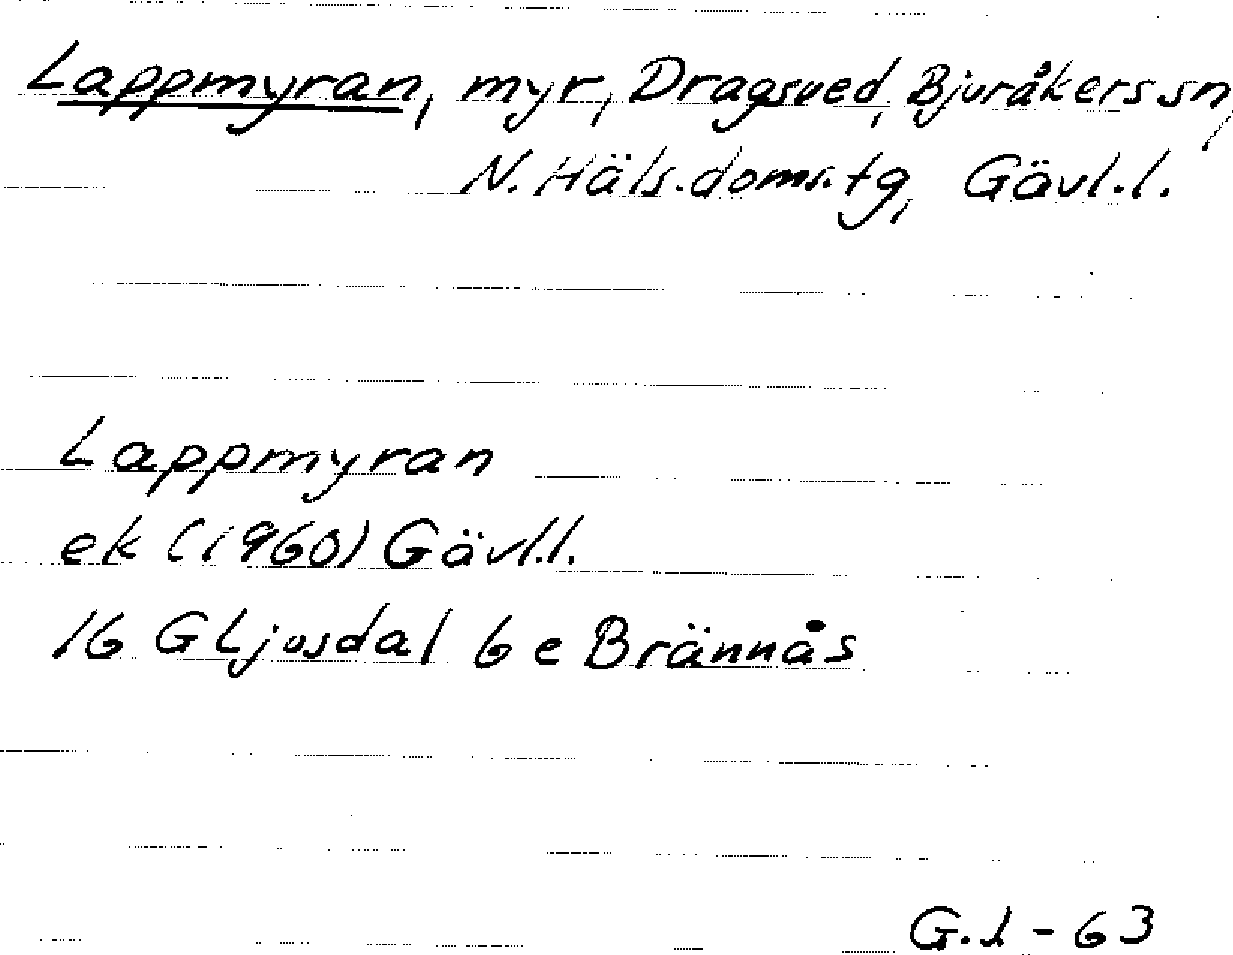 Lappmyran, myr, Dragsved, Bjuråkers sn,
N. Häls. doms. tg, Gävl. l.
Lappmyran
ek (1960) Gävl.l.
16 G Ljusdal 6 e Brännås
G.l - 63